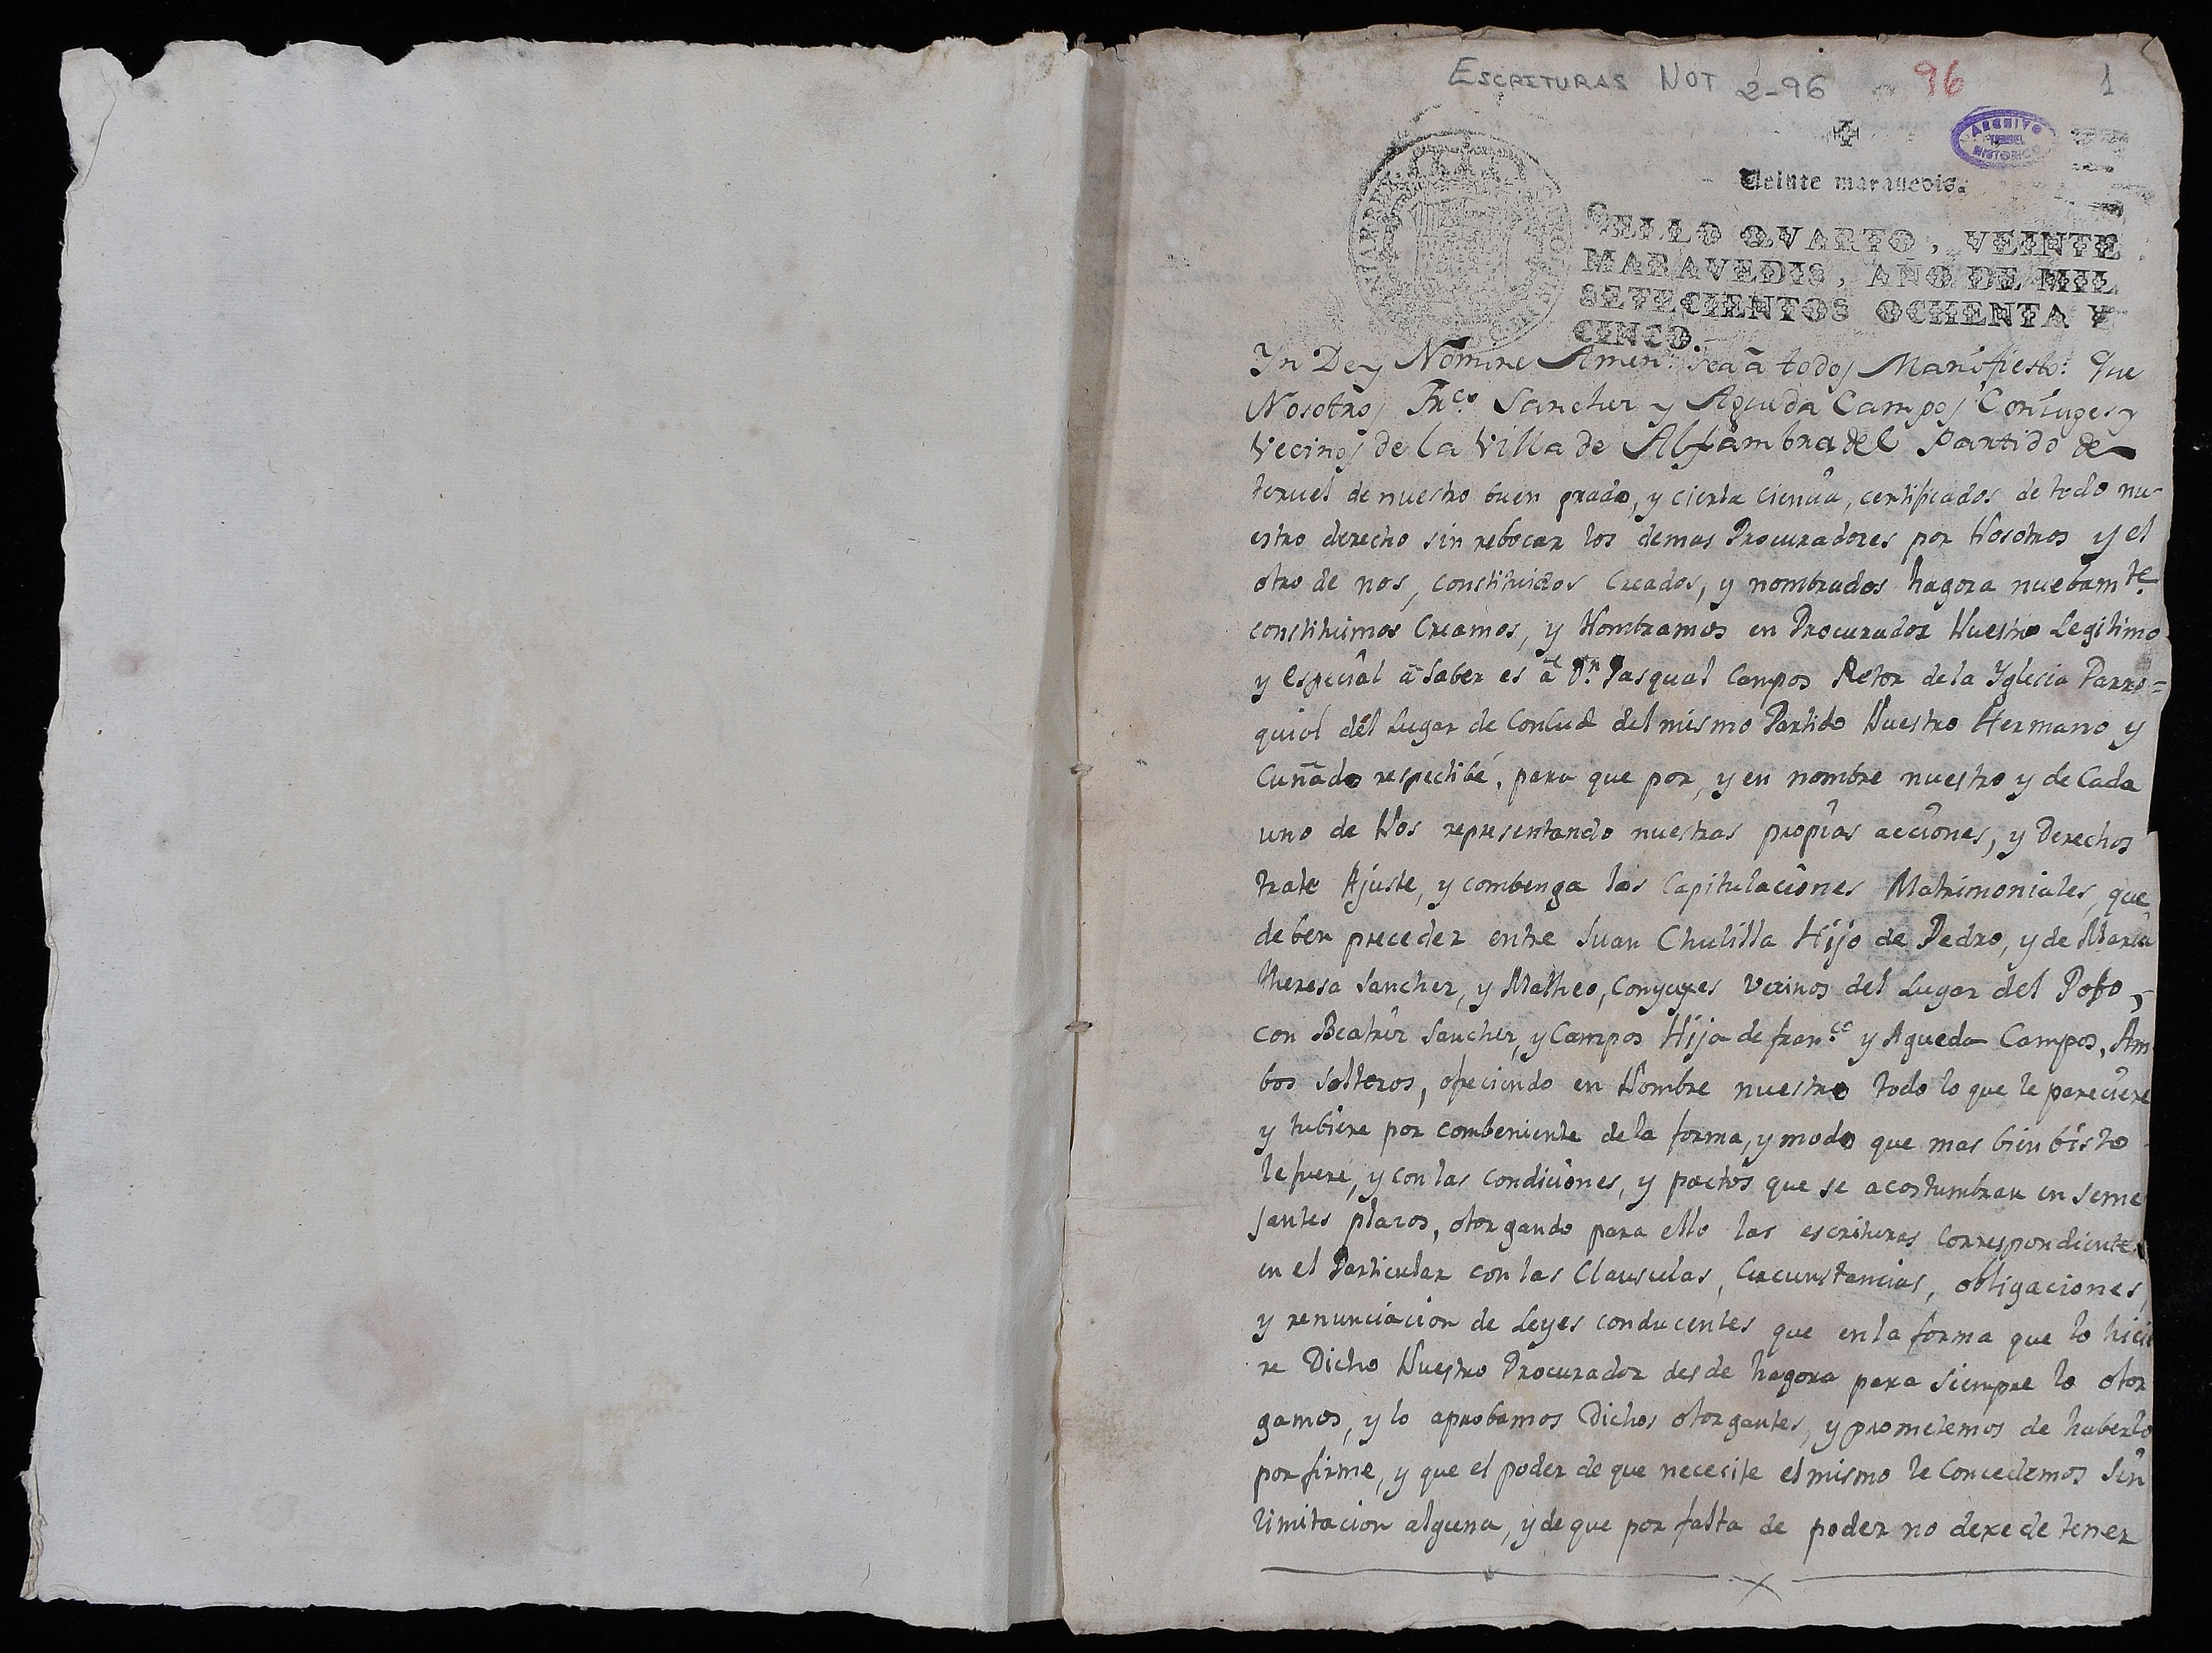 ESCRITURAS NOT 2-96 96 1
ARCHIVO
TERUEL
HISTORICO
Veinte maravedis.
SELLO QVARTO, VEINTE
MARAVEDIS, AÑO DE MIL
SETECIENTOS OCHENTA Y
CINCO.
Yn Dey Nomine Amen: sea a todos Manifiesto: Que
Nosotros Frco. Sanchez y Agueda Campos Coniuges y
Vecinos de la Villa de Alfambra del Partido de
teruel de nuestro buen grado, y cierta ciencia, certificados de todo nu-
estro derecho sin rebocar los demas Procuradores por Nosotros y el
otro de nos, constituidos Creados, y nombrados hagora nuebamte.
constituimos Creamos, y Nombramos en Procurador Nuestro Legitimo
y Especial â saber es â Dn. Pasqual Campos Retor de la Yglesia Parro=
quial del Lugar de Concud del mismo Partido Nuestro Hermano y
Cuñado respectibé, para que por, y en nombre nuestro y de Cada
uno de Nos representando nuestras propias acciones, y Derechos
trate Ajuste, y combenga las Capitulaciones Matrimoniales, que
deben preceder entre Juan Chulilla Hijo de Pedro, y de Maria
theresa Sanchez, y Matheo, Conyuxes Vecinos del Lugar del Pobo,
con Beatriz Sanchez, y Campos Hija de franco. y Agueda Campos, Am
bos Solteros, ofreciendo en Nombre nuestro todo lo que le pareciere
y tubiere por combeniente de la forma, y modo que mas bien bisto
le fuere, y con las condiciones, y pactos que se acostumbran en seme
jantes plazos, otorgando para ello las escrituras Correspondientes
en el Particular con las Clausulas, Circunstancias, obligaciones,
y renunciacion de Leyes conducentes que en la forma que lo hicie
re Dicho Nuestro Procurador desde hagora para siempre lo otor
gamos, y lo aprobamos Dichos otorgantes, y prometemos de haberlo
por firme, y que el poder de que necesite el mismo le Concedemos Sin
limitacion alguna, y de que por falta de poder no dexe de tener